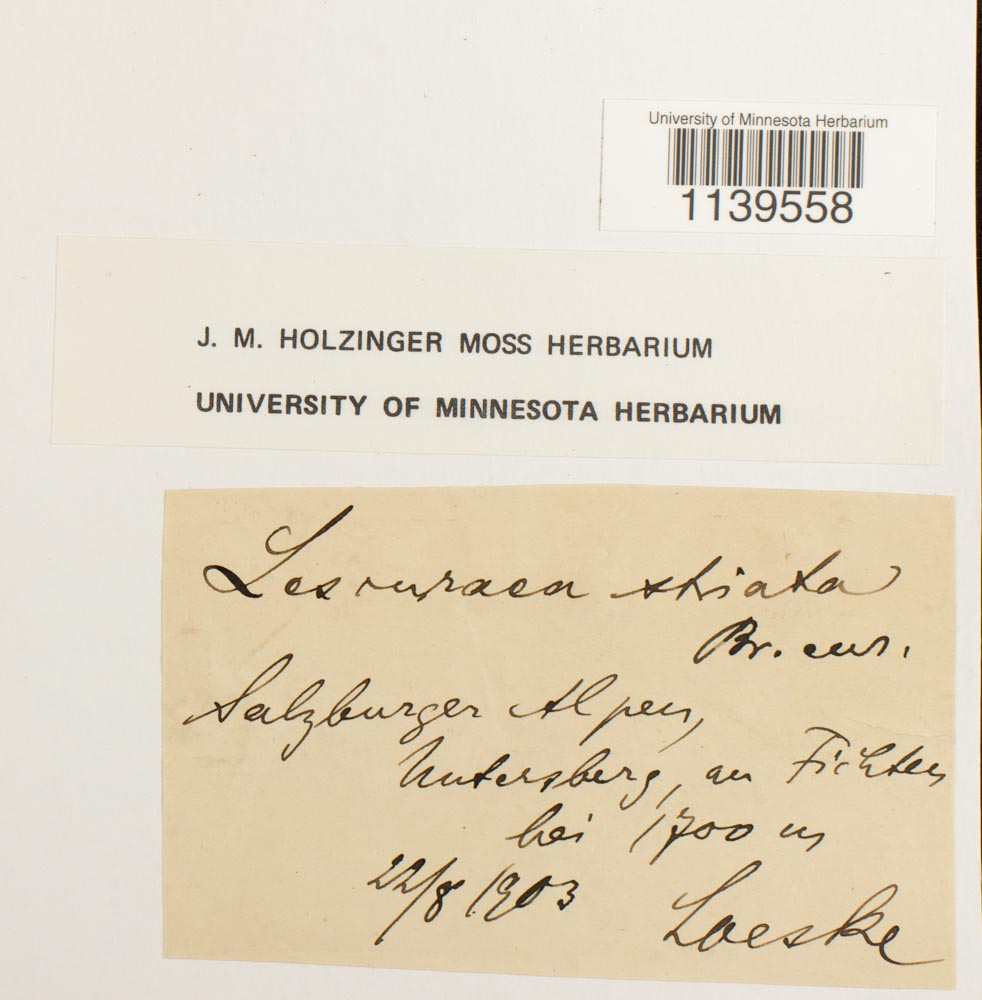 University of Minnesota Herbarium
1139558
J. M. HOLZINGER MOSS HERBARIUM
UNIVERSITY OF MINNESOTA HERBARIUM
Lescuraea striata
Br. eur.
Salzburger Alpen,
Untersberg, an Fichten
bei 1700 m
22/8 1903 Loeske